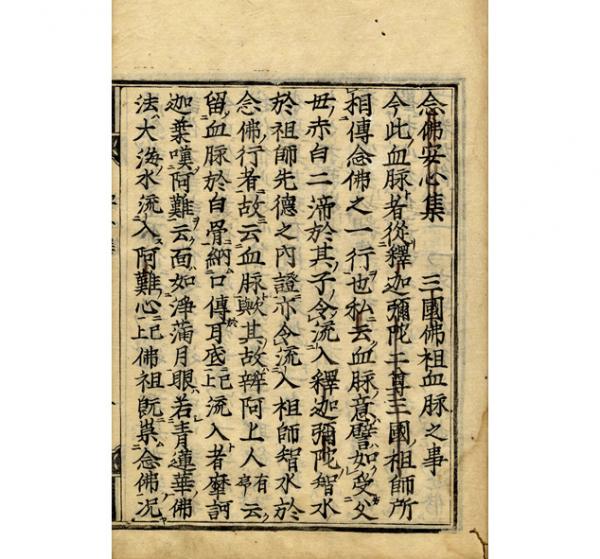 念佛安心集　三國佛祖血脉之事
今此血脉者從釋迦彌陀二尊三國祖師所
相傳念佛之一行也私云血脉意譬如受父
母赤白二渧於其子令流入釋迦彌陀智水
於祖師先德之內證亦令流入祖師智水於
念佛行者故云血脉歟其故辨阿上人有亭云
留血脉於白骨納口傳耳底已上流入者摩訶
迦葉嘆阿難云面如淨滿月眼若青蓮華佛
法大海水流入阿難心已上佛祖既崇念佛况